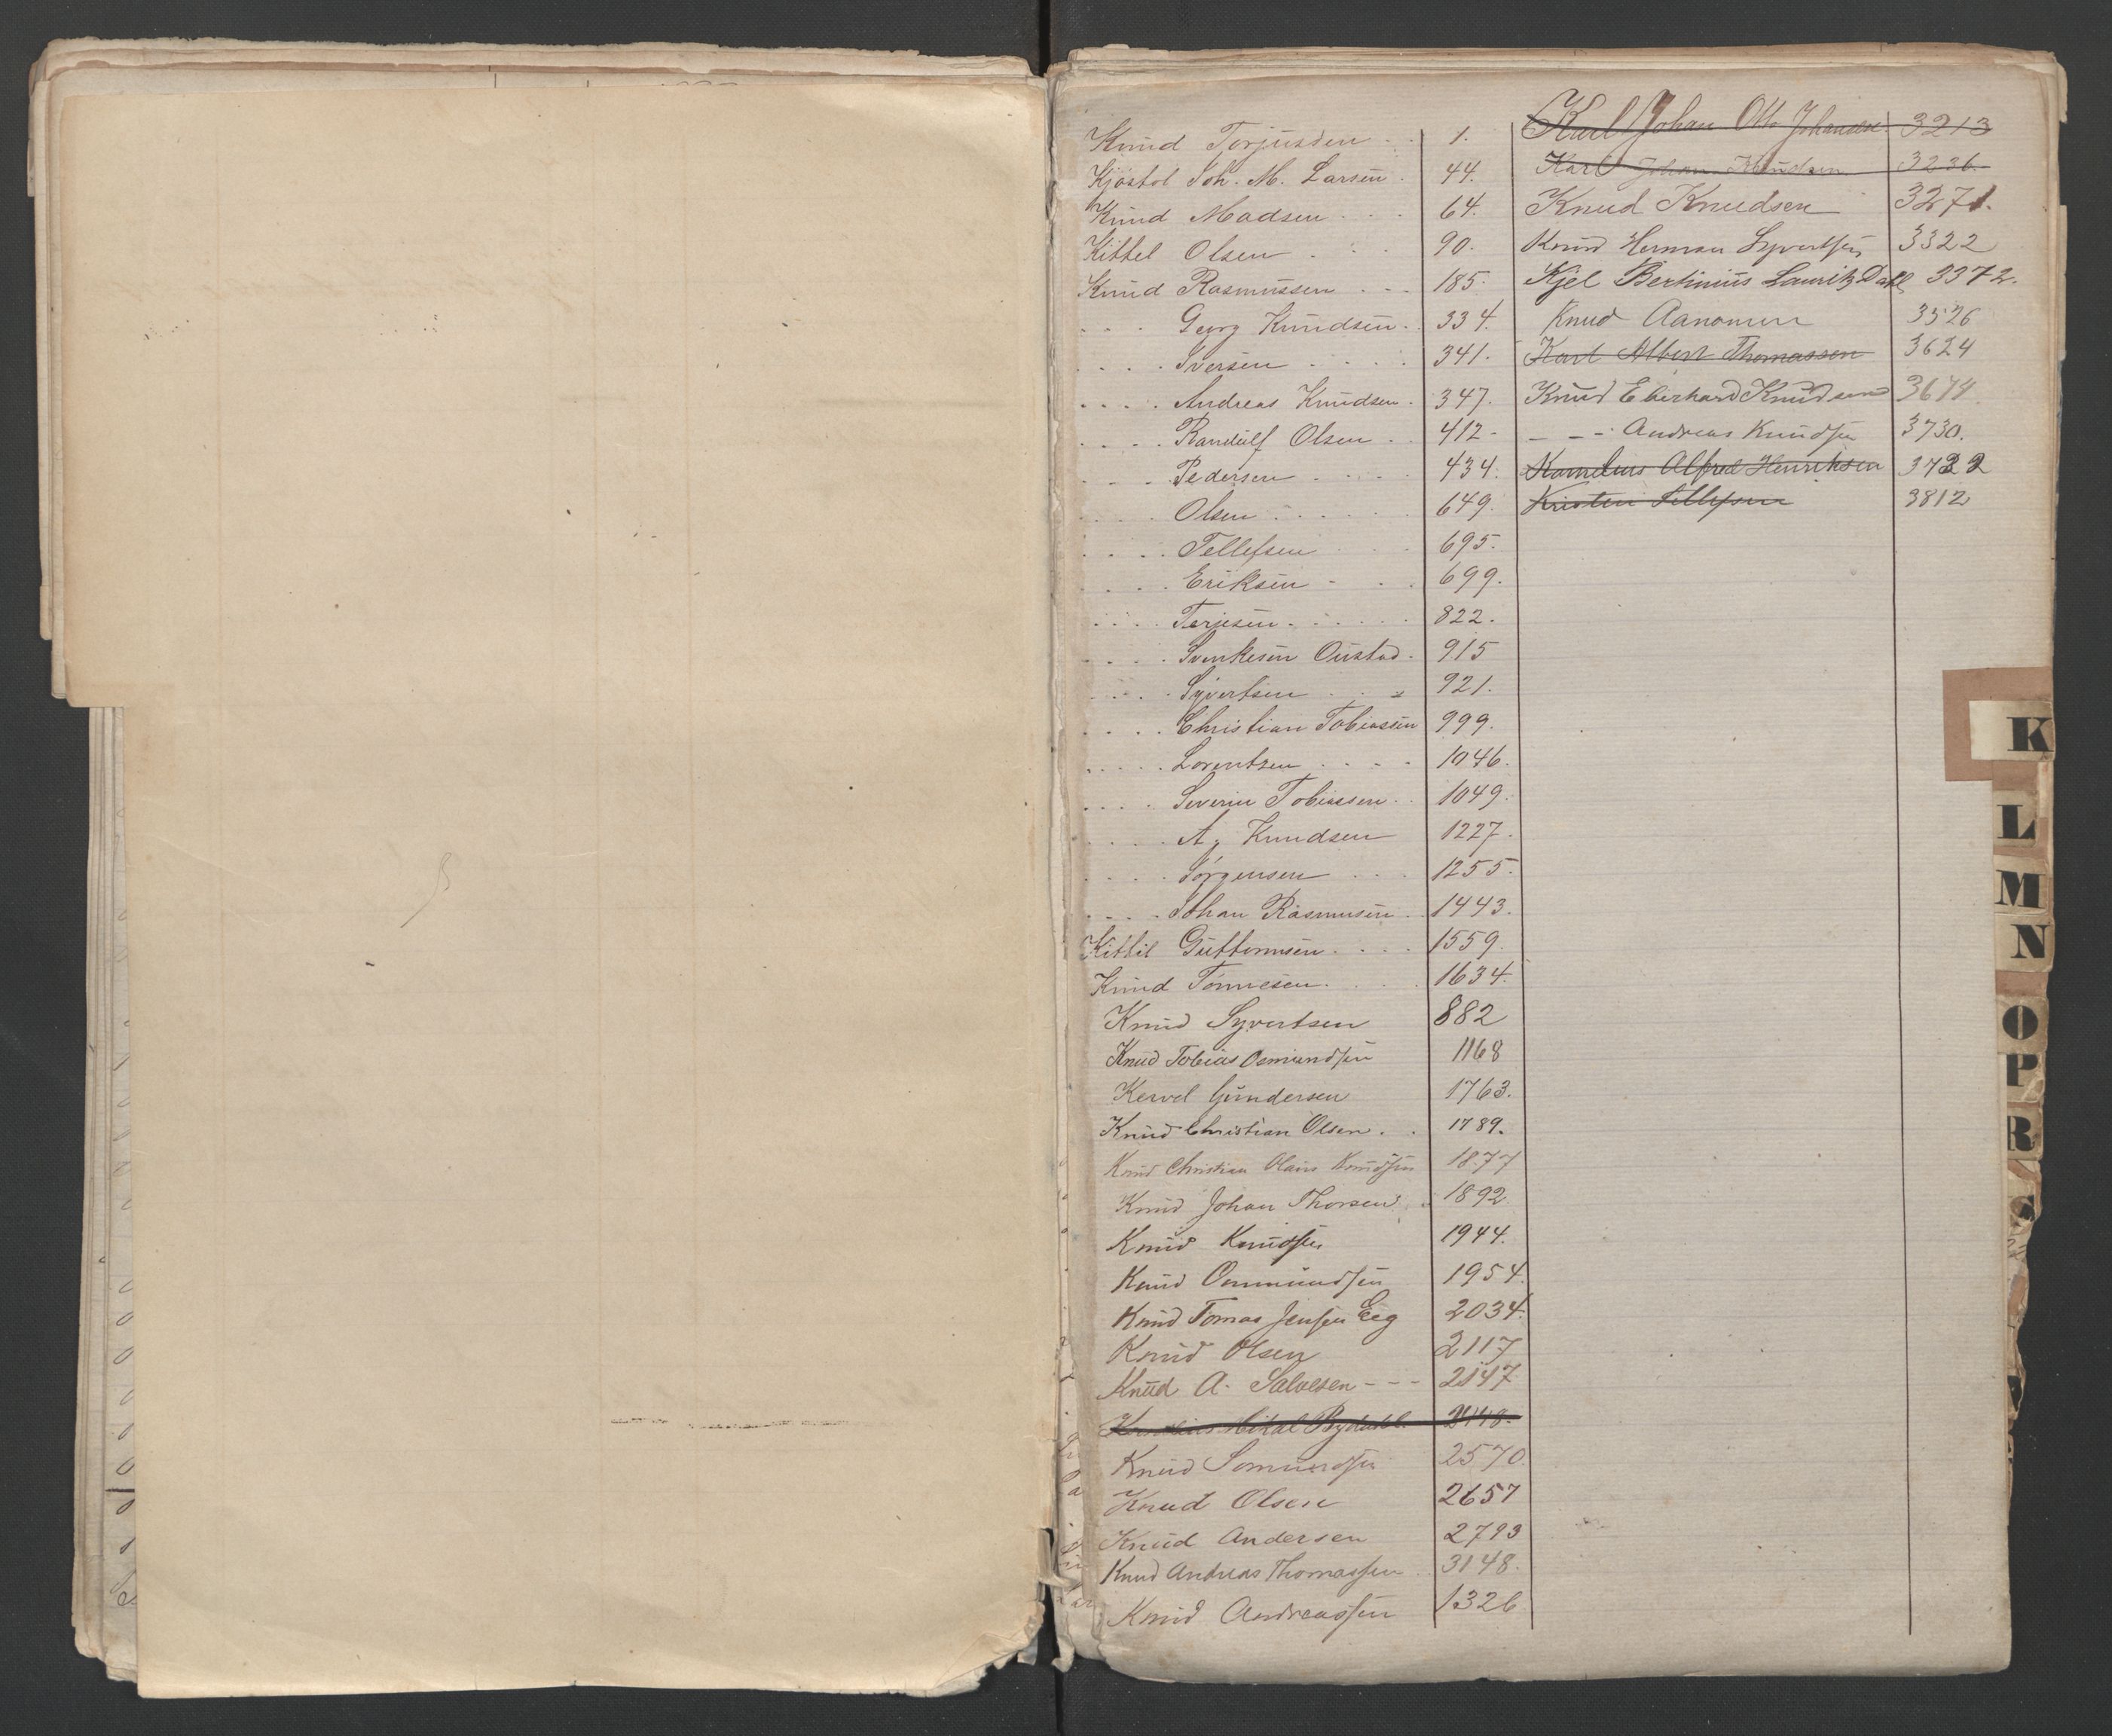 Knud Torjussen . . 1.
Kjöstol Joh. M. Larsen . 44.
Knud Madsen . . . 64.
Kittel Olsen . . . 90.
Knud Rasmussen . . . 185.
. . . Georg Knudsen . 334.
. . . . Iversen . . . . 341.
. . . . Andreas Knudsen . 347.
. . . . Randulf Olsen . . 412
. . . Pedersen . . . . 434.
. . . . Olsen . . . . . 649.
. . . . Tellefsen . . . 695.
. . . . Eriksen . . . 699.
. . . . Terjesen . . . . . 822.
. . . . Svenkesen Oustad . 915
. . . . Syvertsen . . . 921.
. . . . Christian Tobiassen 999.
. . . . . Lorentsen . . . . 1046.
. . . . Severin Tobiassen . . 1049.
. . . . Ag Knudsen 1227.
. . . . Jörgensen . . . 1255.
. . . . Johan Rasmusen . . 1443.
Kittil Guttormsen . . . . 1559.
Knud Tönnesen . . . . 1634.
Knud Syvertsen 882
Knud Tobias Osmundsen 1168
Kervel Gundersen 1763.
Knud Christian Olsen . . 1789.
Knud Christian Olaus Knudsen 1877
Knud Johan Thorsen . . 1892.
Knud Knudsen 1944.
Knud Ommundsen 1954.
Knud Tomas Jensen Eeg 2034.
Knud Olsen 2117
Knud A. Salvesen - - - 2147
Mikal 2148.
Knud 2570.
Knud Olsen 2657
Knud Andersen 2793
Knud Andreas Thomassen 3148.
Knud Andreassen 1326
Karl Johan Otto Johansen 3213
Karl Johan Knudsen 3236.
Knud Knudsen 3271.
Knud Herman Syvertsen 3322
Kjel Bertinius Lauritz Dahl 3372.
Knud Aanonsen 3526
Karl Albert Thomassen 3624
Knud Eberhard Knudsen 3674.
- - - Andreas Knudsen 3730.
Kornelius Alfred Henriksen 3732
Kristen Tellefsen 3812
K
L
M
N
O
P
R
S